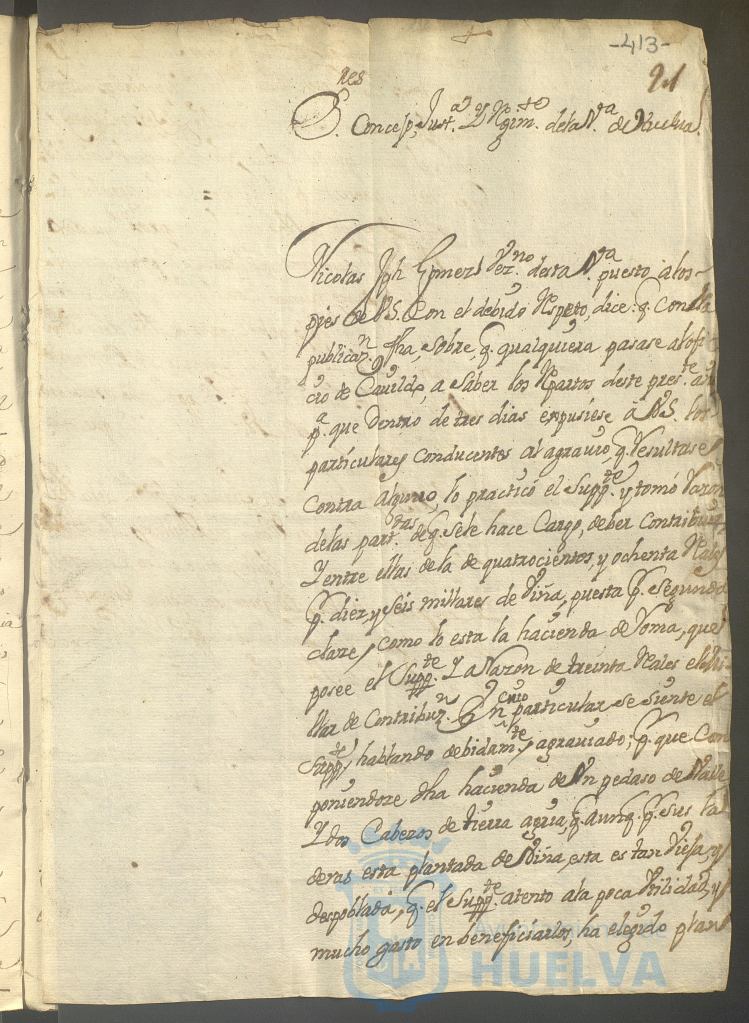 -413-
21
S.res Concejo, Just.a Y Regim.to de la V.a de Huelva.
Nicolas Jph Gomez Vez.no desta V.a puesto a los
pies de V.S. Con el debido Respeto, dice: q. Con la
publicaz.n fha, sobre, q. qualquiera pasase al ofi
cio de Cavildo, a saber los Repartos deste pres.te año
p.a que dentro de tres dias expusiese â V.S. los
particulares conducentes al agravio q. Resultase
contra alguno, lo practicó el Supp.te y tomó Razon
de las part.das de q. se le hace Cargo, deber Contribuir
Y entre ellas de la de quatrocientos, y ochenta Rales
p. diez, y seis millares de Viña, puesta p. segunda
clase, como lo esta la hacienda de Roma, que
posee el Supp.te Y a Razon de treinta Reales el Mi
llar de Contribuz.n En cuio particular se siente el
Supp.te hablando debidam.te agraviado; p. que Com
poniendose dha hacienda de Un pedaso de Valle
Y dos Cabezos de tierra agria, q. aunq. p. sus la
deras esta plantada de Viña, esta es tan Vieja, y
despoblada, q. el Supp.te atento a la poca Utilidad, y
mucho gasto en beneficiarlos, ha elegido plan
HUELVA